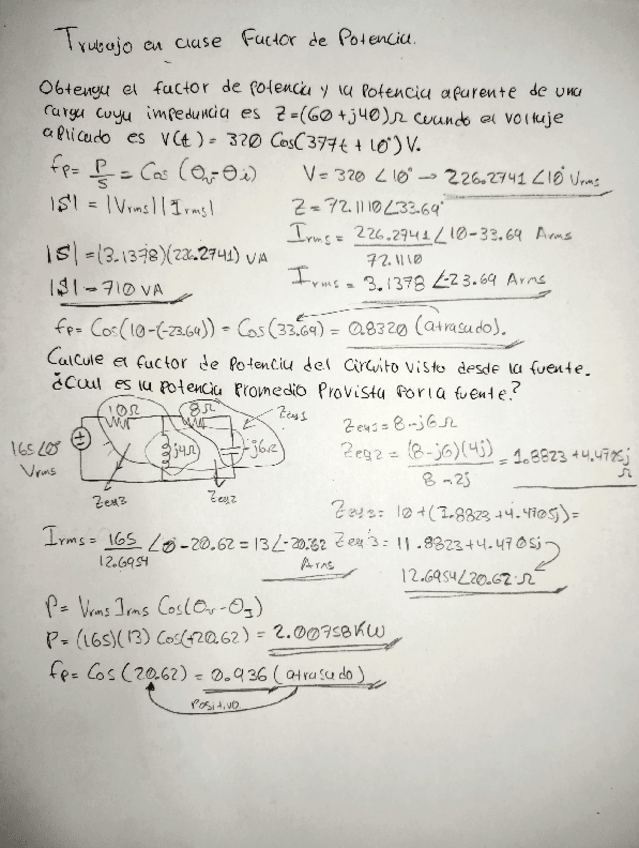 Trabajo en clase Factor de Potencia.
Obtenga el factor de potencia y la Potencia aparente de una
carga cuya impedancia es Z=(60+j40)Ω cuando el voltaje
aplicado es V(t) = 320 Cos(377t + 10°)V.
fp= P/S = Cos (θv-θi)
V= 320 ∠10° → 226.2741 ∠10° Vrms
|S| = |Vrms||Irms|
Z= 72.1110∠33.69°
Irms = 226.2741/72.1110 ∠10-33.69 Arms
|S| =(3.1378)(226.2741) VA
Irms = 3.1378 ∠-23.69 Arms
|S| = 710 VA
fp= Cos(10-(-23.69)) = Cos(33.69) = 0.8320 (atrasado).
Calcule el factor de Potencia del Circuito Visto desde la fuente.
¿Cual es la potencia Promedio Provista Por la fuente?
10Ω
8Ω
Zeq1
165∠0°
Vrms
j4Ω
-j6Ω
Zeq3
Zeq2
Zeq1= 8-j6Ω
Zeq2 = (8-j6)(4j)/8-2j = 1.8823+4.4705j Ω
Zeq3= 10+(1.8823+4.4705j)=
Irms = 165/12.6954 ∠0-20.62 = 13∠-20.62 Arms
Zeq3= 11.8823+4.4705j
12.6954∠20.62 Ω
P= Vrms Irms Cos(θv-θI)
P= (165)(13) Cos(+20.62) = 2.00758KW
fp= Cos (20.62) = 0.936 (atrasado)
Positivo